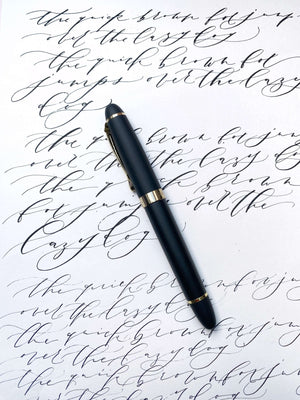 the quick brown fox jump
over the lazy dog
the quick brown fox
jumps over the lazy
dog
the brown fox jump
over the lazy dog
the quick brown
fox jumps over the
lazy dog
the quick brown fox jump
over the lazy dog
the quick brown fox jum
over the lazy dog
the quick brown fox jump
over the lazy dog